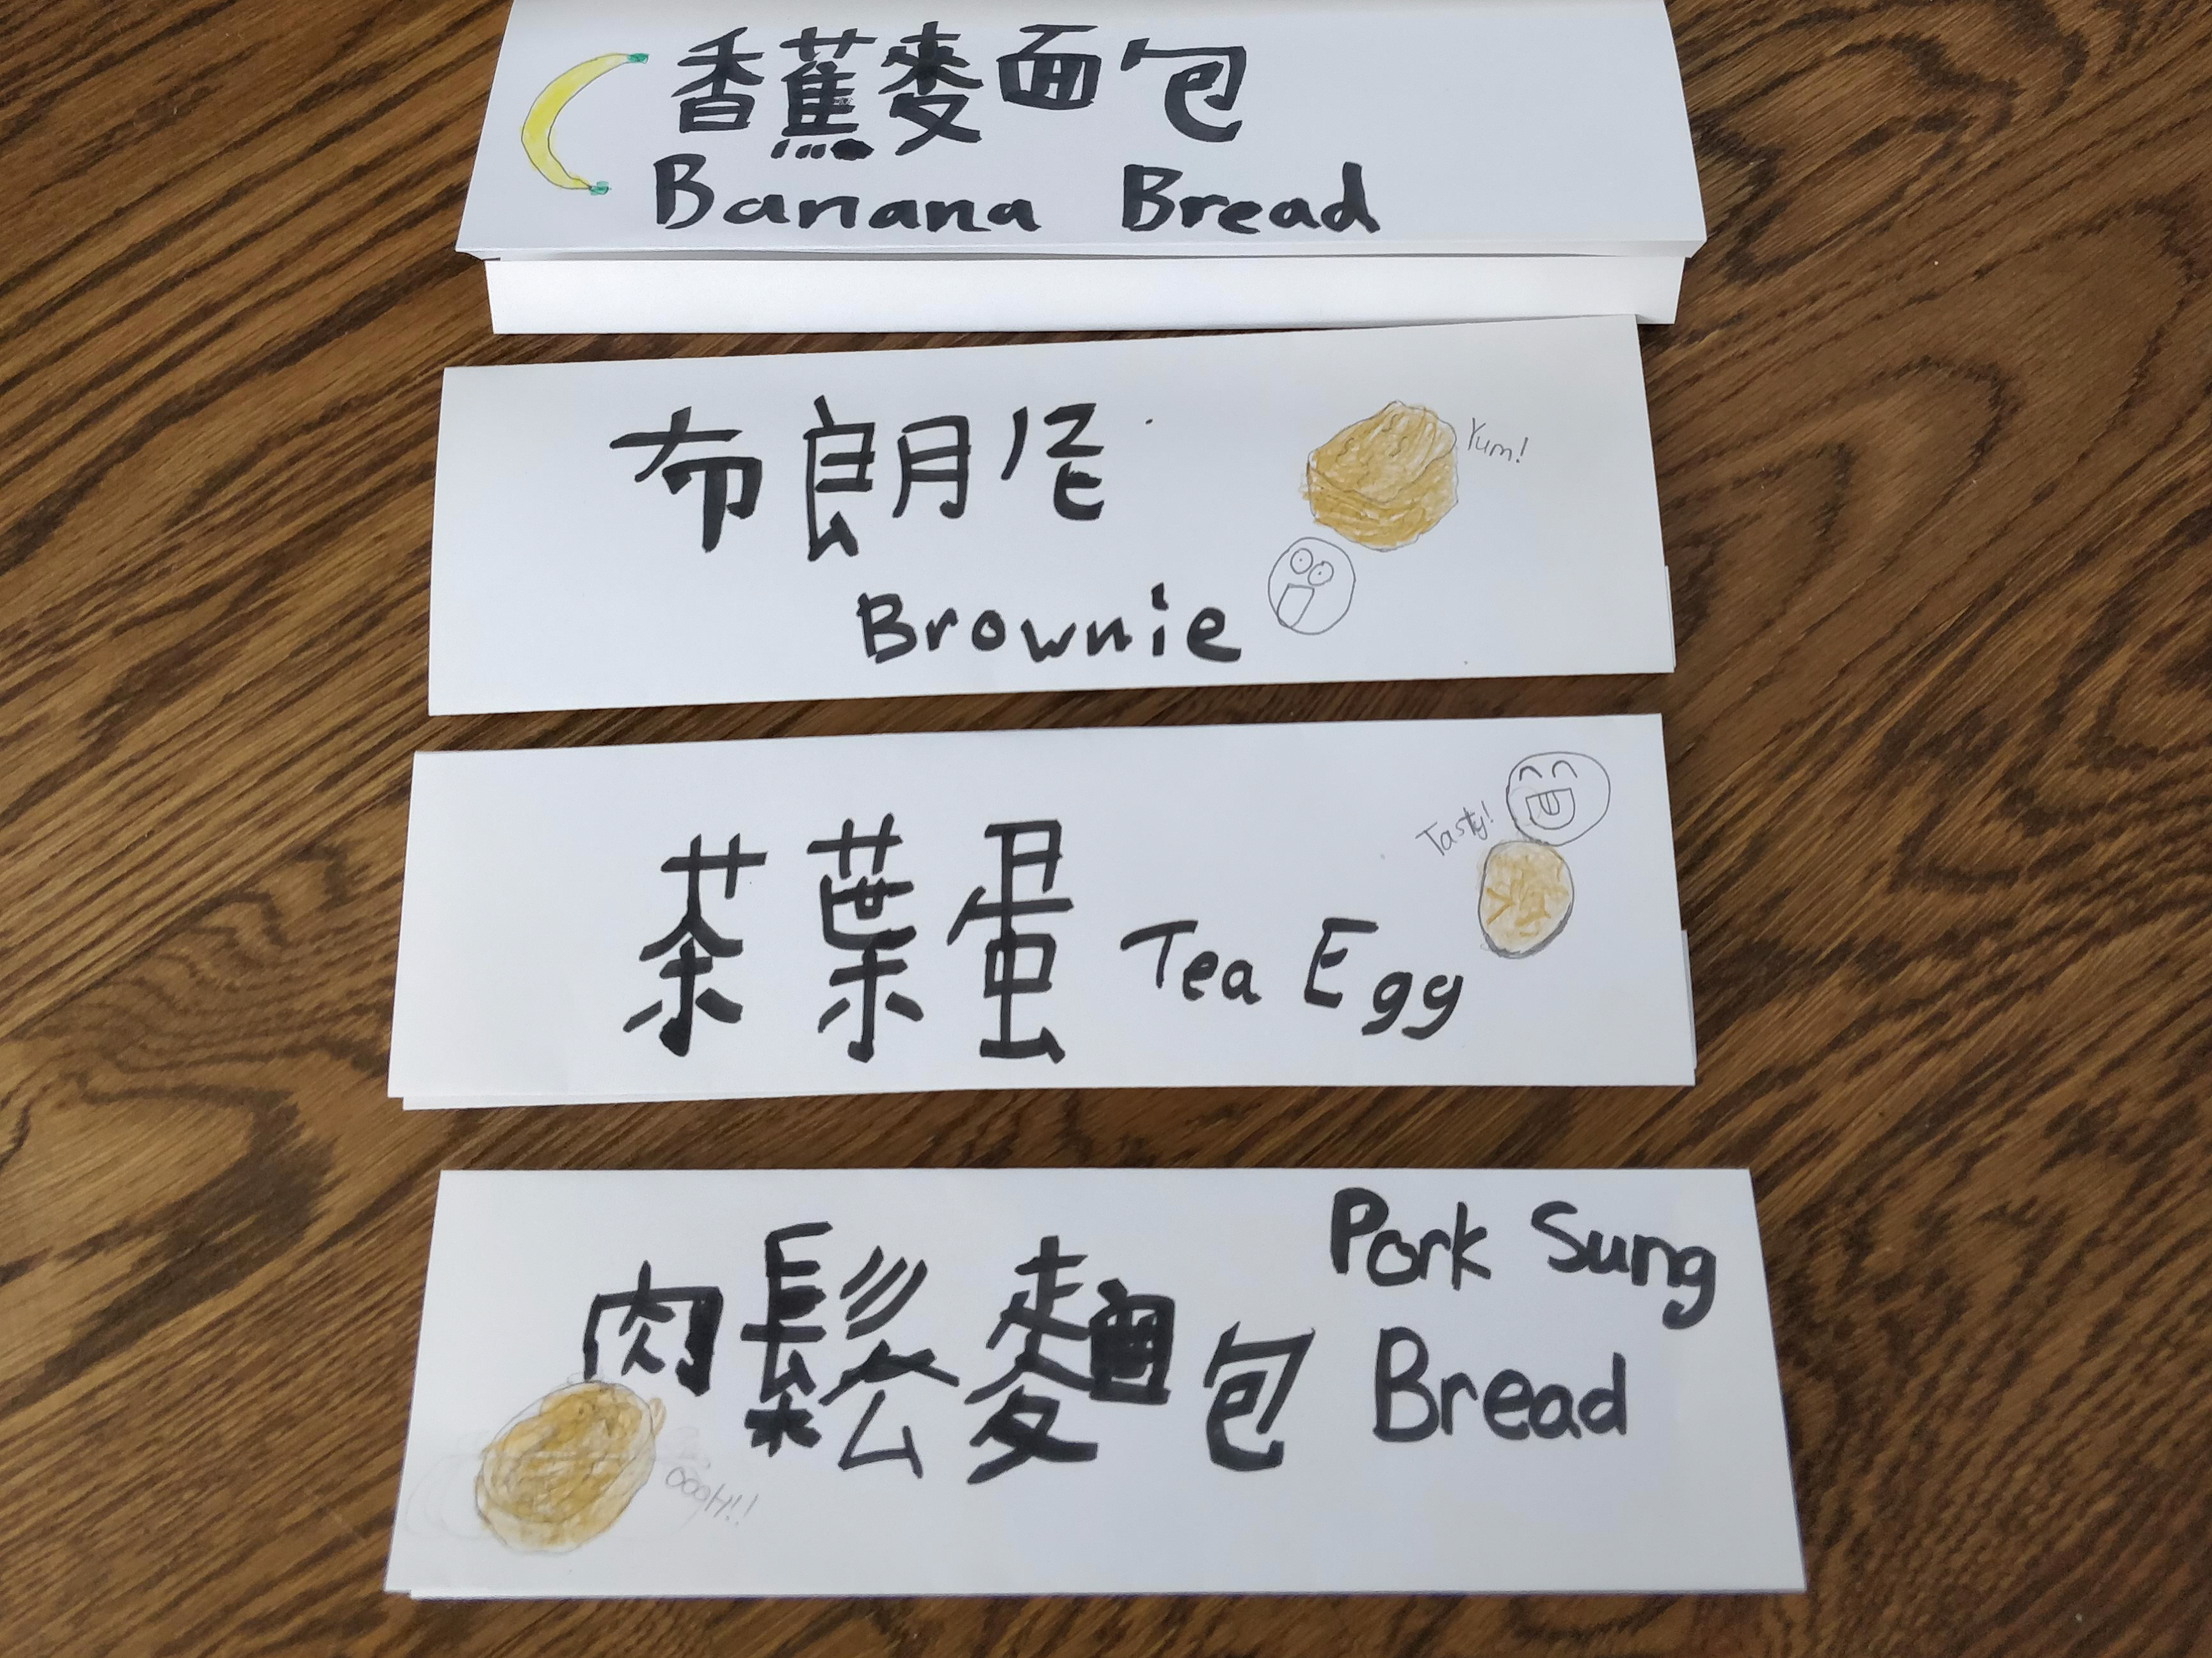 香蕉麥面包
Banana Bread
布朗尼
Yum!
Brownie
Tasty!
茶葉蛋 Tea Egg
肉鬆麵包
Pork Sung
Bread
OOOH!!